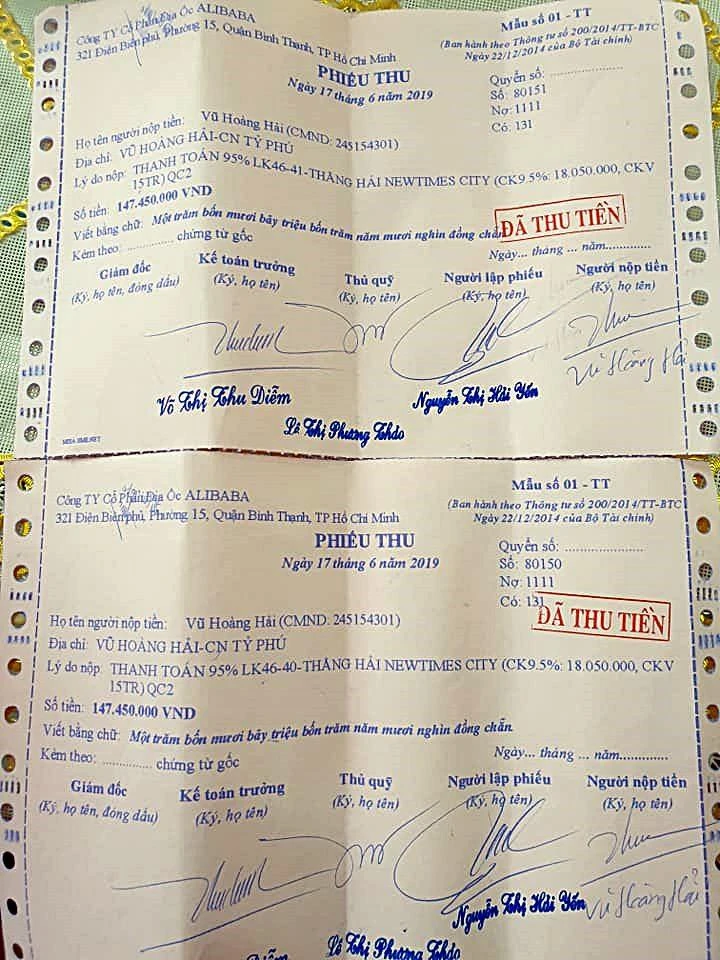 Công TY Cổ Phần Địa Ốc ALIBABA
321 Điện Biên phủ, Phường 15, Quận Bình Thạnh, TP Hồ Chí Minh
Mẫu số 01 - TT
(Ban hành theo Thông tư số 200/2014/TT-BTC
Ngày 22/12/2014 của Bộ Tài chính)
PHIẾU THU
Ngày 17 tháng 6 năm 2019
Quyển số: ....................
Số: 80151
Nợ: 1111
Có: 131
Họ tên người nộp tiền: Vũ Hoàng Hải (CMND: 245154301)
Địa chỉ: VŨ HOÀNG HẢI-CN TỶ PHÚ
Lý do nộp: THANH TOÁN 95% LK46-41-THẮNG HẢI NEWTIMES CITY (CK9.5%: 18.050.000, CKV
15TR) QC2
Số tiền: 147.450.000 VND
Viết bằng chữ: Một trăm bốn mươi bảy triệu bốn trăm năm mươi nghìn đồng chẵn
ĐÃ THU TIỀN
Kèm theo: .............. chứng từ gốc
Ngày... tháng ... năm.............
Giám đốc Kế toán trưởng Thủ quỹ Người lập phiếu Người nộp tiền
(Ký, họ tên, đóng dấu) (Ký, họ tên) (Ký, họ tên) (Ký, họ tên) (Ký, họ tên)
Vũ Hoàng Hải
Võ Thị Thu Diễm Nguyễn Thị Hải Yến
Lê Thị Phương Thảo
MISA SME.NET
Công TY Cổ Phần Địa Ốc ALIBABA
321 Điện Biên phủ, Phường 15, Quận Bình Thạnh, TP Hồ Chí Minh
Mẫu số 01 - TT
(Ban hành theo Thông tư số 200/2014/TT-BTC
Ngày 22/12/2014 của Bộ Tài chính)
PHIẾU THU
Ngày 17 tháng 6 năm 2019
Quyển số: ....................
Số: 80150
Nợ: 1111
Có: 131
ĐÃ THU TIỀN
Họ tên người nộp tiền: Vũ Hoàng Hải (CMND: 245154301)
Địa chỉ: VŨ HOÀNG HẢI-CN TỶ PHÚ
Lý do nộp: THANH TOÁN 95% LK46-40-THẮNG HẢI NEWTIMES CITY (CK9.5%: 18.050.000, CKV
15TR) QC2
Số tiền: 147.450.000 VND
Viết bằng chữ: Một trăm bốn mươi bảy triệu bốn trăm năm mươi nghìn đồng chẵn
Kèm theo: .............. chứng từ gốc
Ngày... tháng ... năm.............
Giám đốc Kế toán trưởng Thủ quỹ Người lập phiếu Người nộp tiền
(Ký, họ tên, đóng dấu) (Ký, họ tên) (Ký, họ tên) (Ký, họ tên) (Ký, họ tên)
Nguyễn Thị Hải Yến Vũ Hoàng Hải
Diễm Lê Thị Phương Thảo